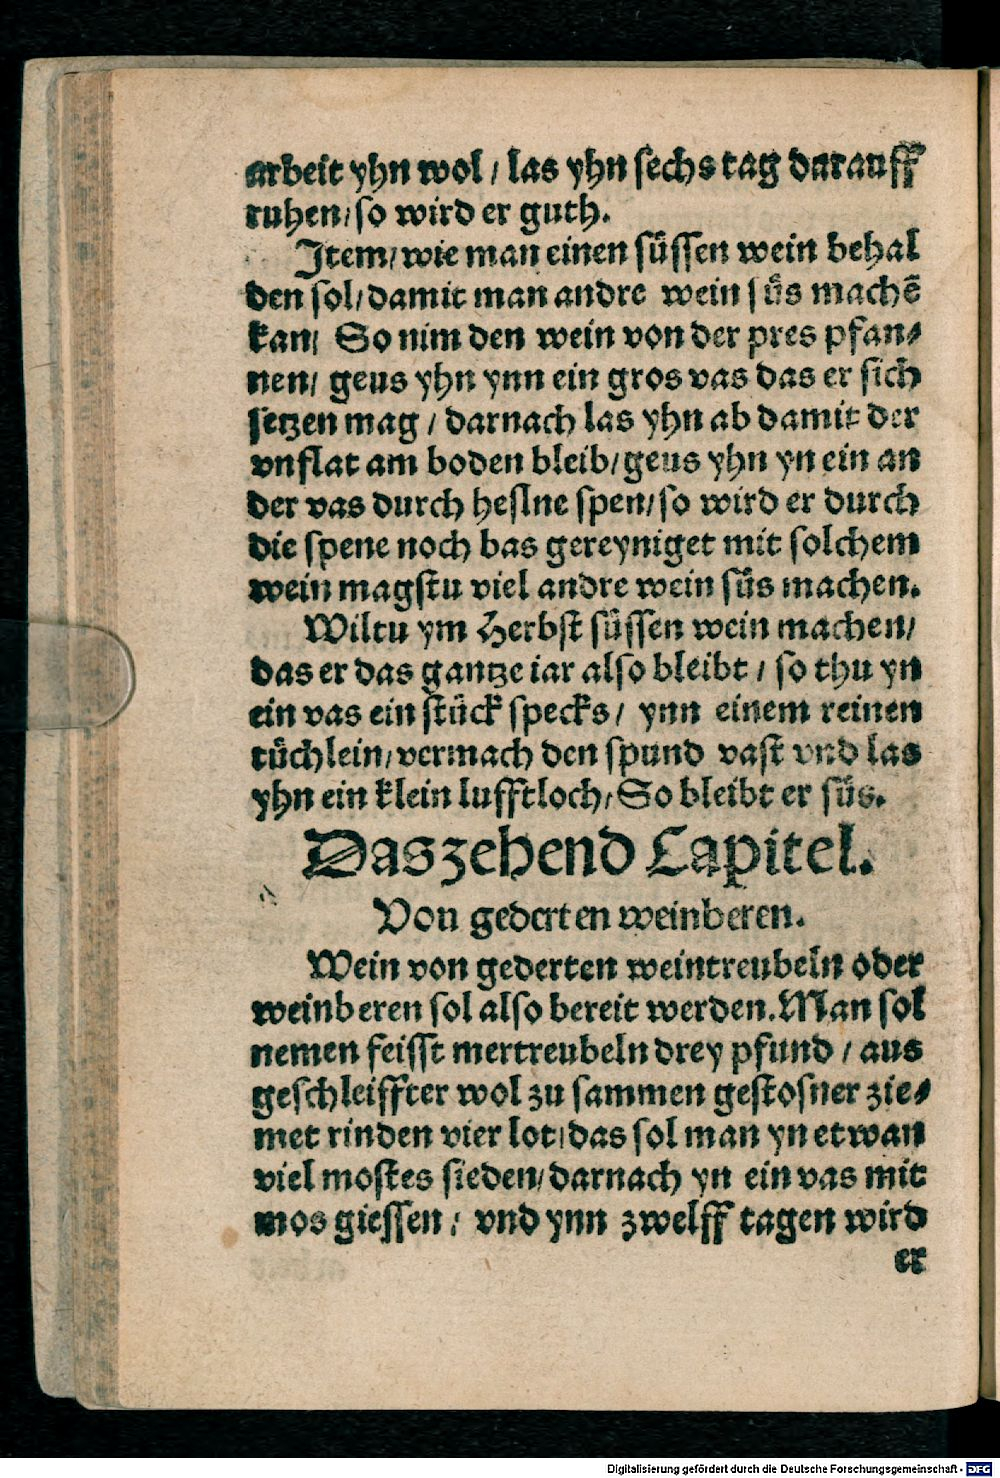 arbeit yhn wol / las yhn sechs tag darauff
ruhen / so wird er guth.
Item / wie man einen süssen wein behal
den sol / damit man andre wein süs machē
kan / So nim den wein von der pres pfan⸗
nen / geus yhn ynn ein gros vas das er sich
setzen mag / darnach las yhn ab damit der
vnflat am boden bleib / geus yhn yn ein an
der vas durch heslne spen / so wird er durch
die spene noch bas gereyniget mit solchem
wein magstu viel andre wein süs machen.
Wiltu ym Herbst süssen wein machen /
das er das gantze iar also bleibt / so thu yn
ein vas ein stück specks / ynn einem reinen
tüchlein / vermach den spund vast vnd las
yhn ein klein lufftloch / So bleibt er süs.
Das zehend Capitel.
Von gederten weinberen.
Wein von gederten weintreubeln oder
weinberen sol also bereit werden. Man sol
nemen feisst mertreubeln drey pfund / aus
geschleiffter wol zu sammen gestosner zie⸗
met rinden vier lot / das sol man yn etwan
viel mostes sieden / darnach yn ein vas mit
mos giessen / vnd ynn zwelff tagen wird
er
Digitalisierung gefördert durch die Deutsche Forschungsgemeinschaft - DFG